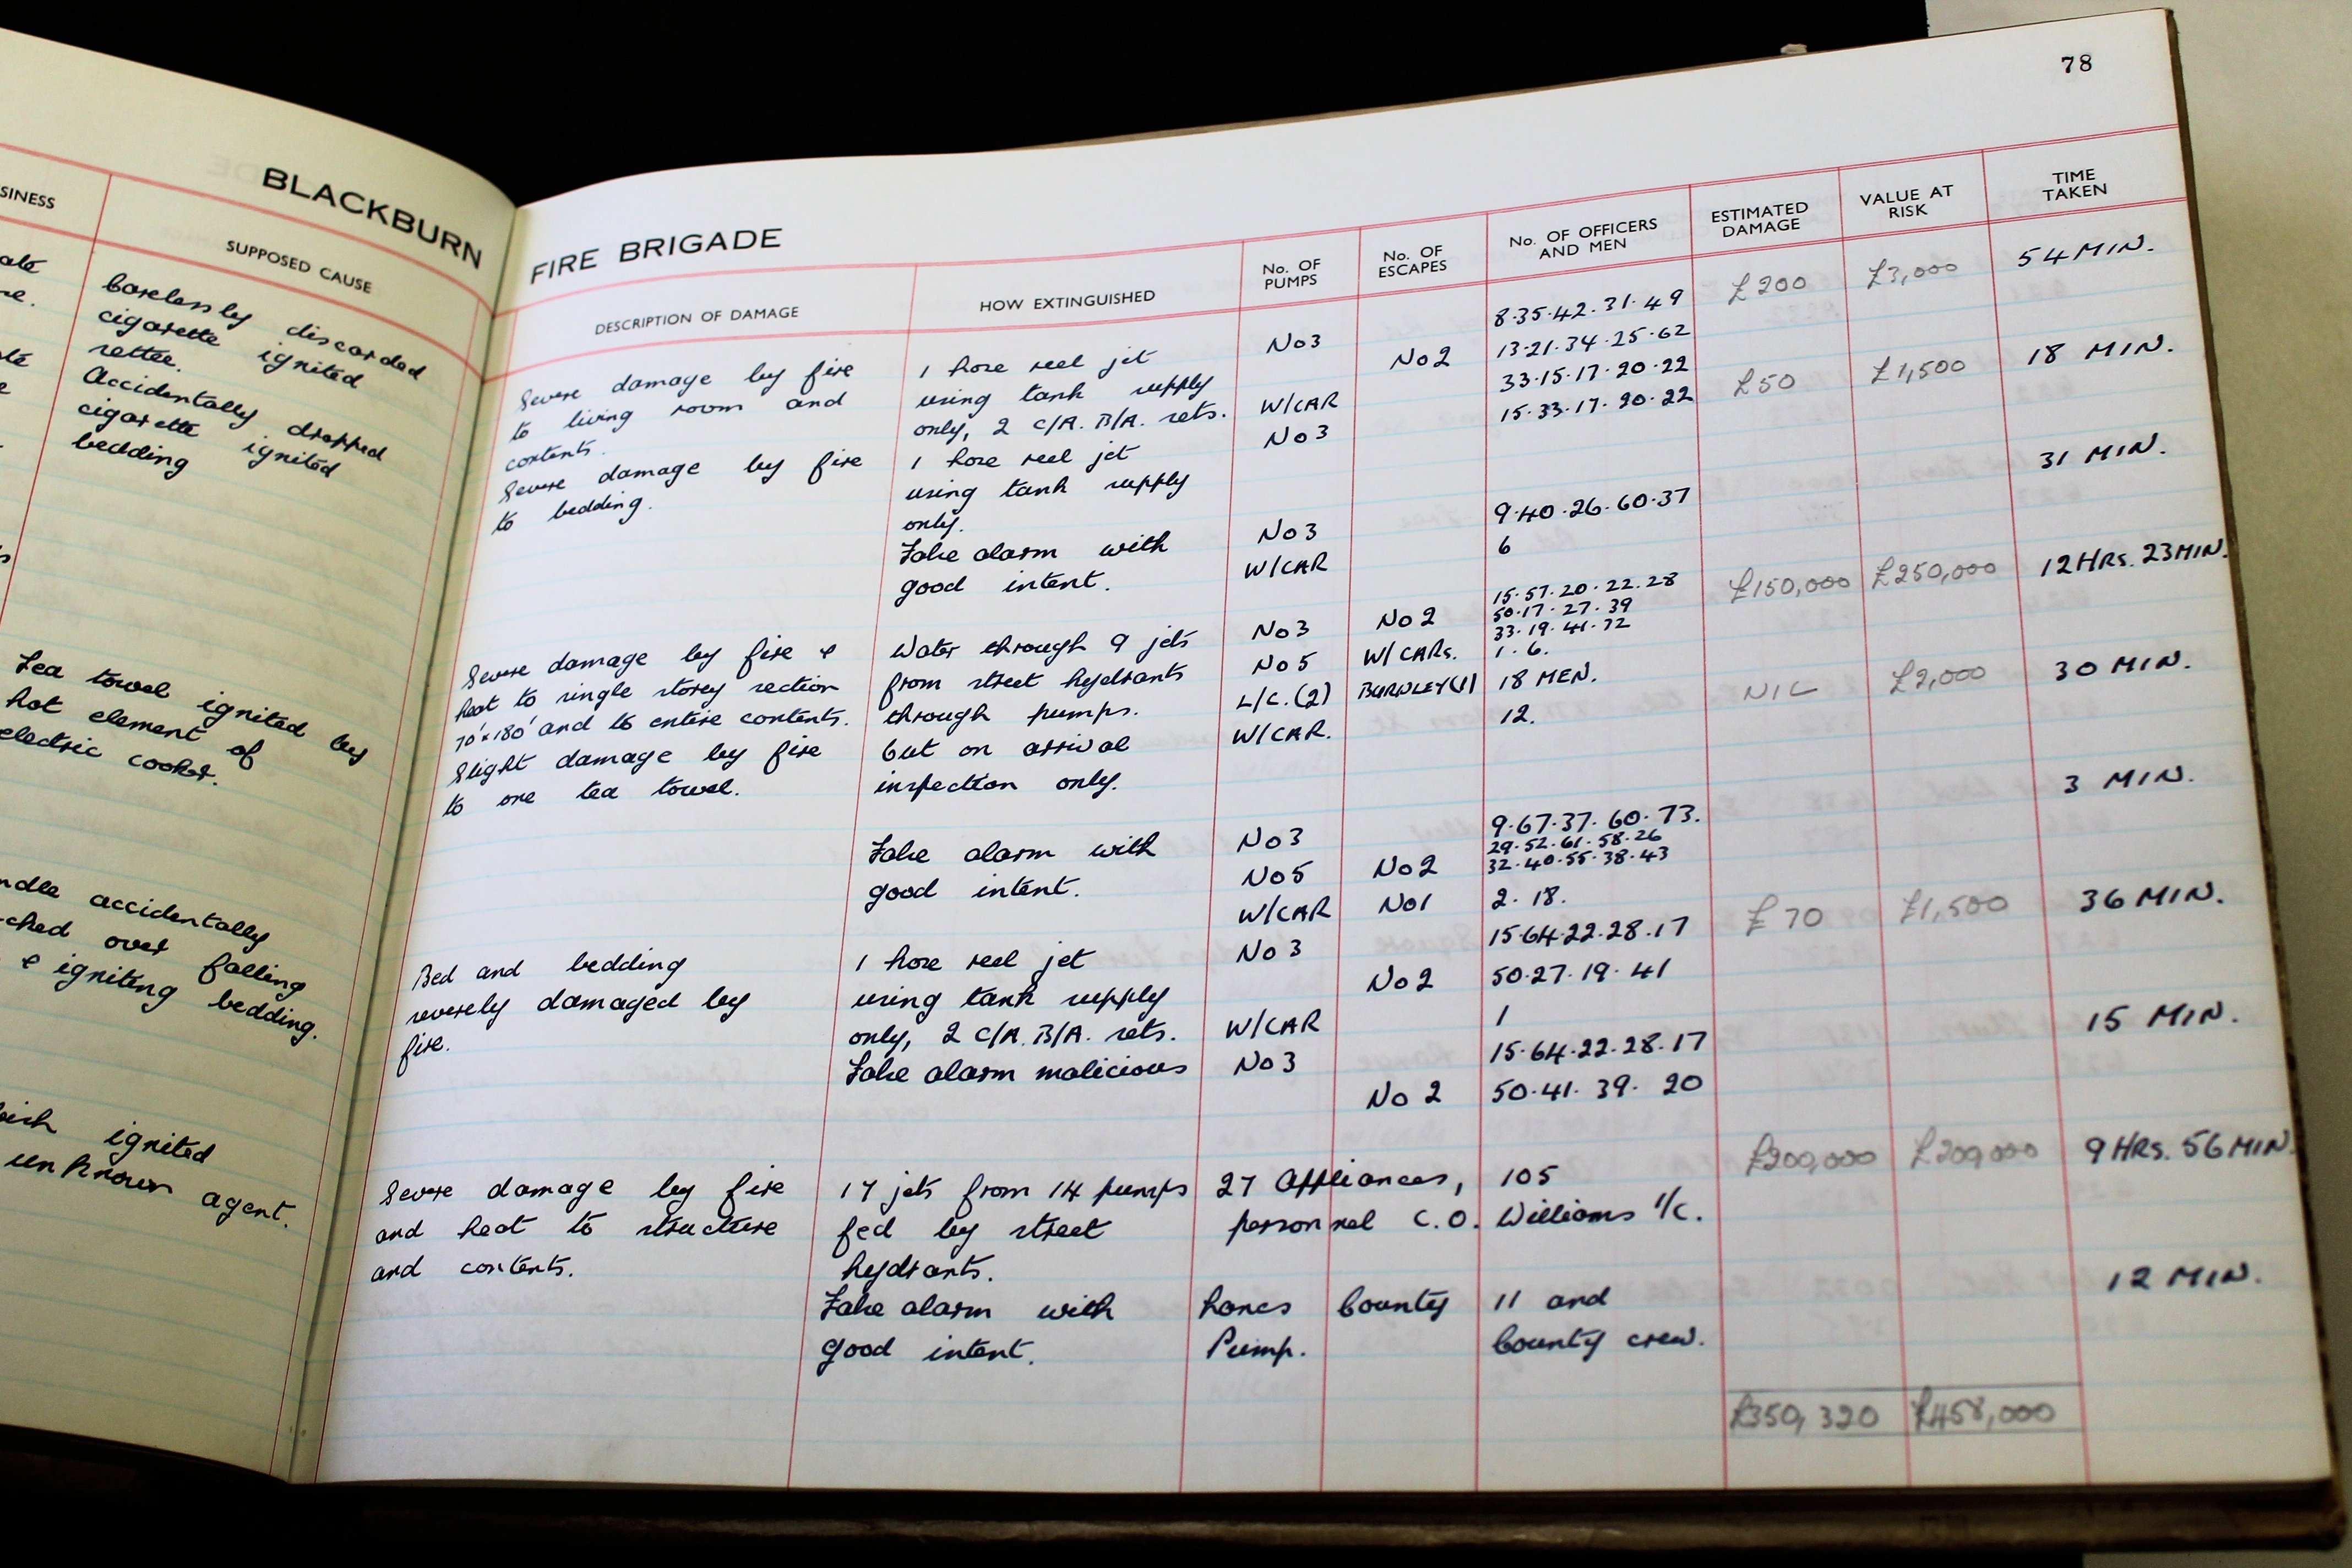 BLACKBURN
SINESS
SUPPOSED CAUSE
Carelessly discarded
cigarette ignited
settee.
Accidentally dropped
cigarette ignited
bedding
Tea towel ignited by
hot element of
electric cooker.
accidentally
over falling
& igniting bedding.
ignited
unknown agent.
78
FIRE BRIGADE
DESCRIPTION OF DAMAGE
HOW EXTINGUISHED
No. OF PUMPS
No. OF ESCAPES
No. OF OFFICERS AND MEN
ESTIMATED DAMAGE
VALUE AT RISK
TIME TAKEN
Severe damage by fire 1 hose reel jet No 3 8·35·42·31·49 £200 £3,000 54 MIN.
to living room and using tank supply No 2 13·21·34·25·62
contents. only, 2 C/A. B/A. sets. W/CAR 33·15·17·20·22
Severe damage by fire 1 hose reel jet No 3 15·33·17·20·22 £50 £1,500 18 MIN.
to bedding. using tank supply
only.
False alarm with No 3 9·40·26·60·37 31 MIN.
good intent. W/CAR 6
Severe damage by fire & Water through 9 jets No 3 No 2 15·57·20·22·28 £150,000 £250,000 12 HRS. 23 MIN.
50·17·27·39
33·19·41·72
heat to single storey section from street hydrants No 5 W/CARs. 1·6.
70'x180' and to entire contents. through pumps. L/C.(2) BURNLEY(1) 18 MEN.
Slight damage by fire Out on arrival W/CAR. 12. NIL £2,000 30 MIN.
to one tea towel. inspection only.
False alarm with No 3 9·67·37·60·73. 3 MIN.
29·52·61·58·26
good intent. No 5 No 2 32·40·55·38·43
W/CAR No 1 2·18.
Bed and bedding 1 hose reel jet No 3 15·64·22·28·17 £70 £1,500 36 MIN.
severely damaged by using tank supply No 2 50·27·19·41
fire. only, 2 C/A. B/A. sets. W/CAR 1
False alarm malicious No 3 15·64·22·28·17 15 MIN.
No 2 50·41·39·20
Severe damage by fire 17 jets from 14 pumps 27 Appliances, 105 £200,000 £200,000 9 HRS. 56 MIN.
and heat to structure fed by street personnel C.O. Williams I/C.
and contents. hydrants.
False alarm with Lancs County 11 and 12 MIN.
good intent. Pump. County crew.
£350,320 £458,000